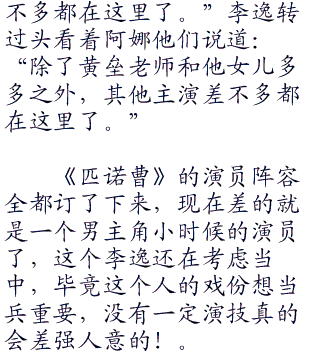 不多都在这里了。”李逸转
过头看着阿娜他们说道：
“除了黄垒老师和他女儿多
多之外，其他主演差不多都
在这里了。”
《匹诺曹》的演员阵容
全都订了下来，现在差的就
是一个男主角小时候的演员
了，这个李逸还在考虑当
中，毕竟这个人的戏份想当
兵重要，没有一定演技真的
会差强人意的！。